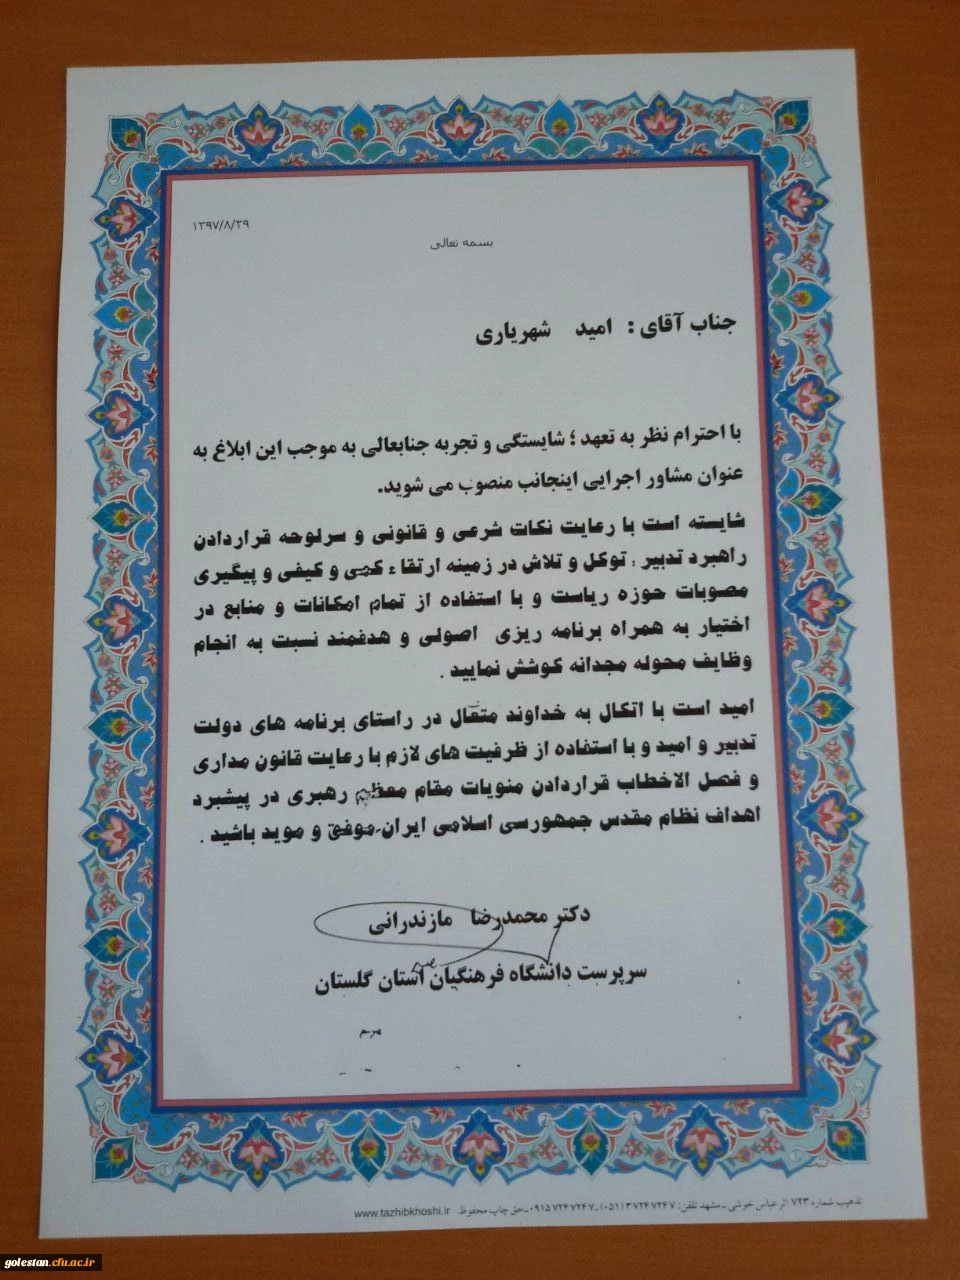 ۱۳۹۷/۸/۲۹
بسمه تعالی
جناب آقای : امید شهریاری
با احترام نظر به تعهد ؛ شایستگی و تجربه جنابعالی به موجب این ابلاغ به
عنوان مشاور اجرایی اینجانب منصوب می شوید.
شایسته است با رعایت نکات شرعی و قانونی و سرلوحه قراردادن
راهبرد تدبیر ؛ توکل و تلاش در زمینه ارتقاء کمی و کیفی و پیگیری
مصوبات حوزه ریاست و با استفاده از تمام امکانات و منابع در
اختیار به همراه برنامه ریزی اصولی و هدفمند نسبت به انجام
وظایف محوله مجدانه کوشش نمایید .
امید است با اتکال به خداوند متعال در راستای برنامه های دولت
تدبیر و امید و با استفاده از ظرفیت های لازم با رعایت قانون مداری
و فصل الاخطاب قراردادن منویات مقام معظم رهبری در پیشبرد
اهداف نظام مقدس جمهورسی اسلامی ایران.موفق و موید باشید .
دکتر محمدرضا مازندرانی
سرپرست دانشگاه فرهنگیان استان گلستان
تذهیب شماره ۷۲۳ اثر عباس خوشی - مشهد تلفن: ۳۷۲۴۷۲۴۷ (۰۵۱) - ۰۹۱۵۷۲۴۷۲۴۷ - حق چاپ محفوظ www.tazhibkhoshi.ir
golestan.cfu.ac.ir